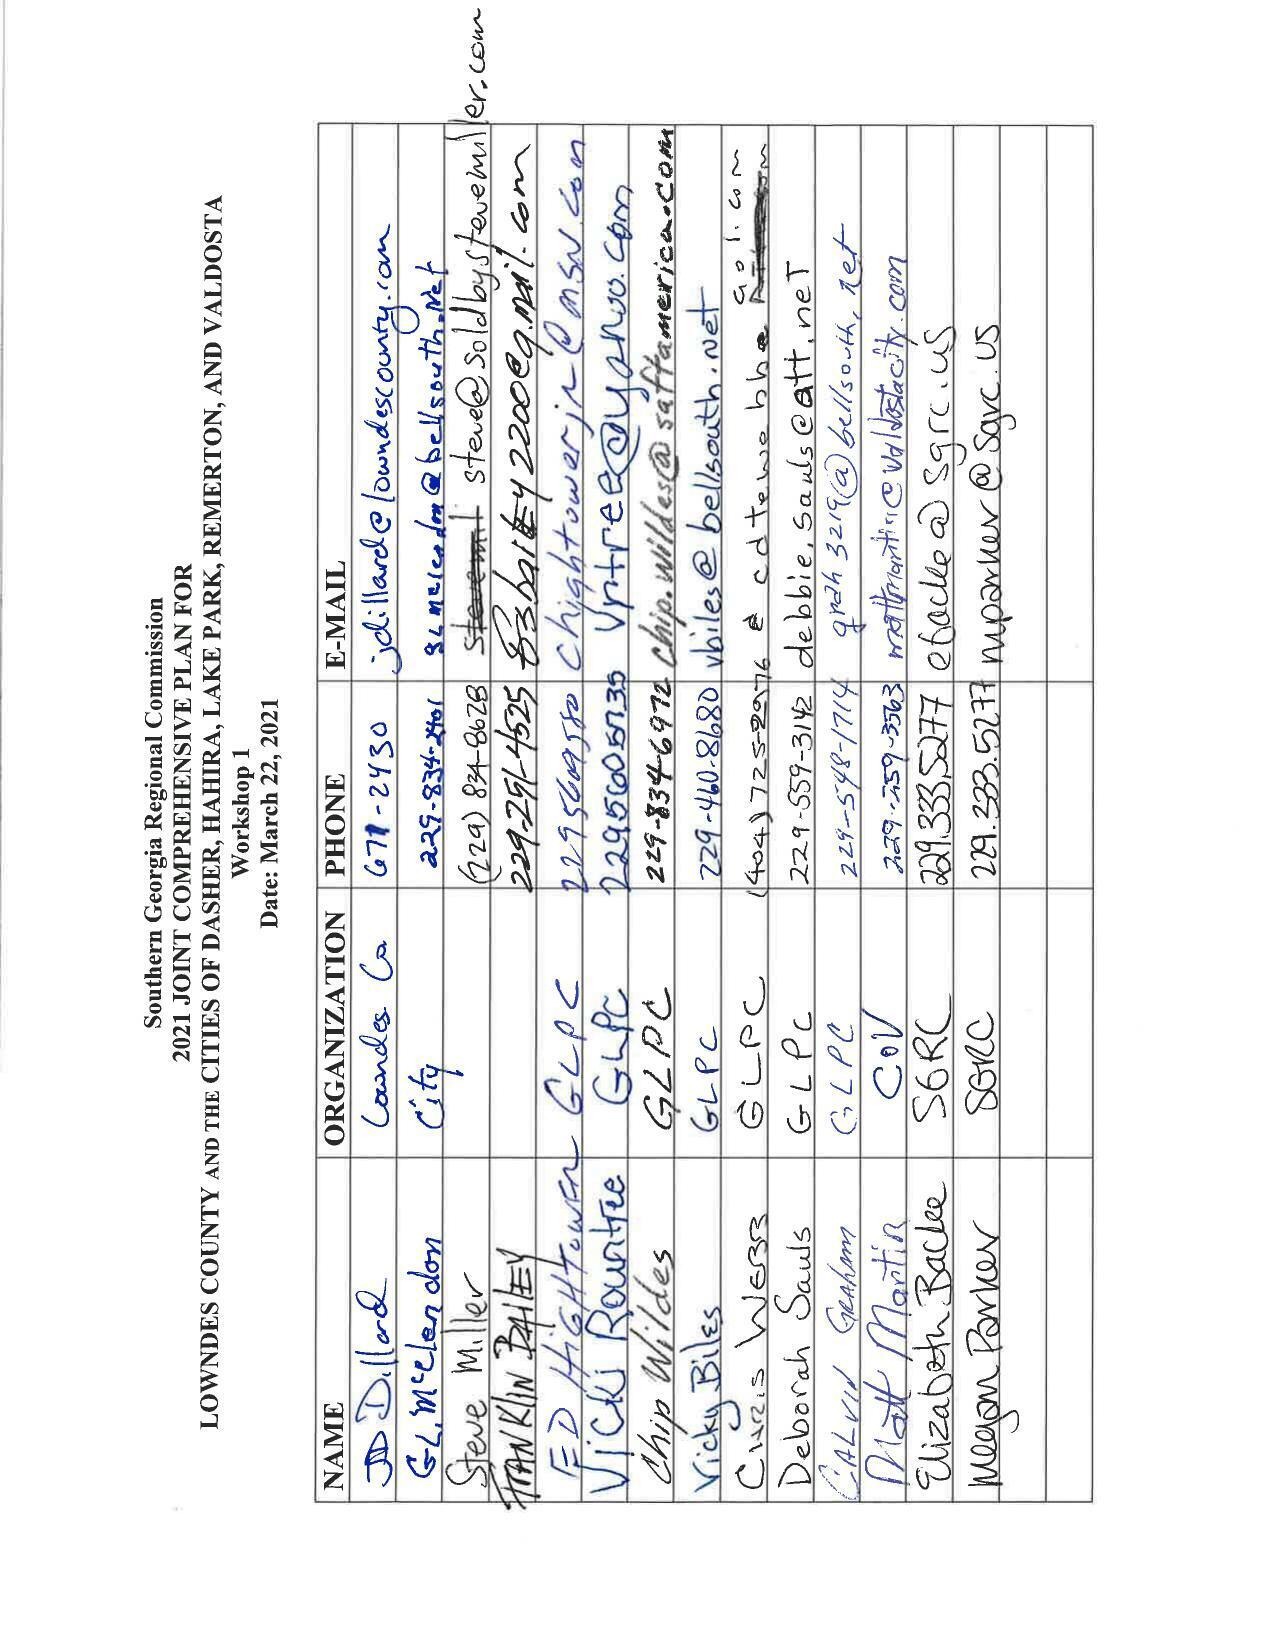 Southern Georgia Regional Commission
2021 JOINT COMPREHENSIVE PLAN FOR
LOWNDES COUNTY AND THE CITIES OF DASHER, HAHIRA, LAKE PARK, REMERTON, AND VALDOSTA
Workshop 1
Date: March 22, 2021
NAME ORGANIZATION PHONE E-MAIL
JD Dillard Lowndes Co 671-2430 jdillard@lowndescounty.com
G.L. McClendon City 229-834-2401 glmclendon@bellsouth.net
Steve Miller (229) 834-8628 steve@soldbystevemiller.com
FRANKLIN BAILEY 229-291-4525
ED HIGHTOWER GLPC 2295609580 Chightowerjr@msn.com
Vicki Rountree GLPC 2295605735 Vntree@yahoo.com
Chip Wildes GLPC 229-834-6972 chip.wildes@saftamerica.com
Vicky Biles GLPC 229-460-8680 vbiles@bellsouth.net
Chris WEBB GLPC (404) 725-2976 aol.com
Deborah Sauls GLPC 229-559-3142 debbie.sauls@att.net
CALVIN GRAHAM GLPC 229-548-1714 grah3219@bellsouth.net
Matt Martin COV 229-259-3563 mattmartin@valdostacity.com
Elizabeth Backe SGRC 229.333.5277 ebacke@sgrc.us
Megan Parker SGRC 229.333.5277 mparker@sgrc.us